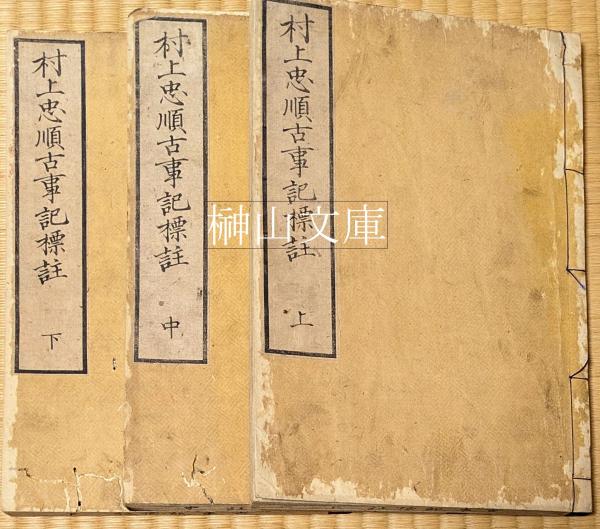 村上忠順古事記標註 上
村上忠順古事記標註 中
村上忠順古事記標註 下
榊山文庫